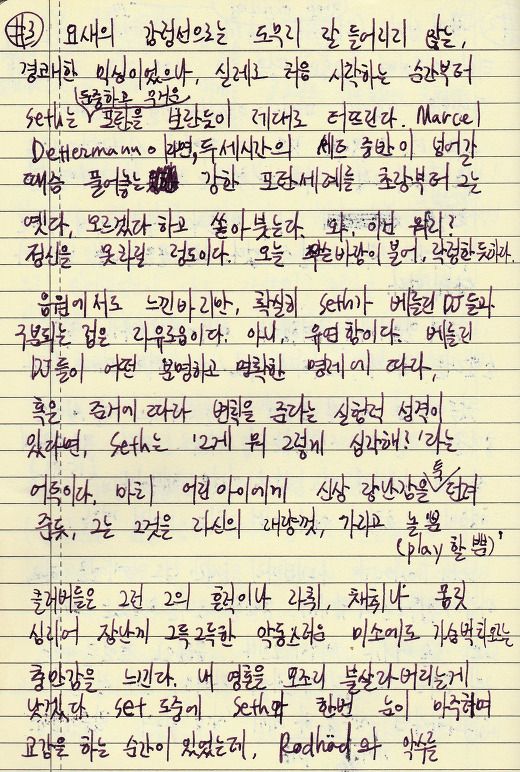 #3 요새의 감성선으로는 도무리 잘 들어리리 않는,
경쾌한 믹싱이었으나, 실레로 처음 시작하는 순간부터
둔중하고 무거운
Seth는 포탄을 보란듯이 제대로 터뜨린다. Marcel
Dettermann이라면, 두세시간의 세트 중반이 넘어갈
때쯤 풀어놓는 강한 포탄세례를 초장부터 그는
옛다, 모르겠다 하고 쏟아붓는다. 와, 이건 뭐리?
정신을 못차릴 정도이다. 오늘 바람이 불어, 작정한듯하다.
음원에서도 느낀바리만, 확실히 Seth가 베를린 DJ들과
구분되는 점은 자유로움이다. 아니, 유연함이다. 베를린
DJ들이 어떤 분명하고 명확한 명제에 따라,
혹은 근거에 따라 변화를 준다는 실험적 성격이
있다면, Seth는 '그게 뭐 그렇게 심각해?'라는
어투이다. 마치 어린아이에게 신상 장난감을 툭 던져
준듯, 그는 그것을 자신의 재량껏, 가리고 놀뿐
(play 할 뿐)'
클러버들은 그런 그의 흔적이나 자취, 채취나 몸짓
심리어 장난끼 그득그득한 악동스러운 미소에도 가슴벅차오르는
충만감을 느낀다. 내 영혼을 모조리 불살라버리는게
낫겠다. Set 도중에 Seth와 한번 눈이 마주하며
교감을 하는 순간이 있었는데, Rødhåd 와 악수를